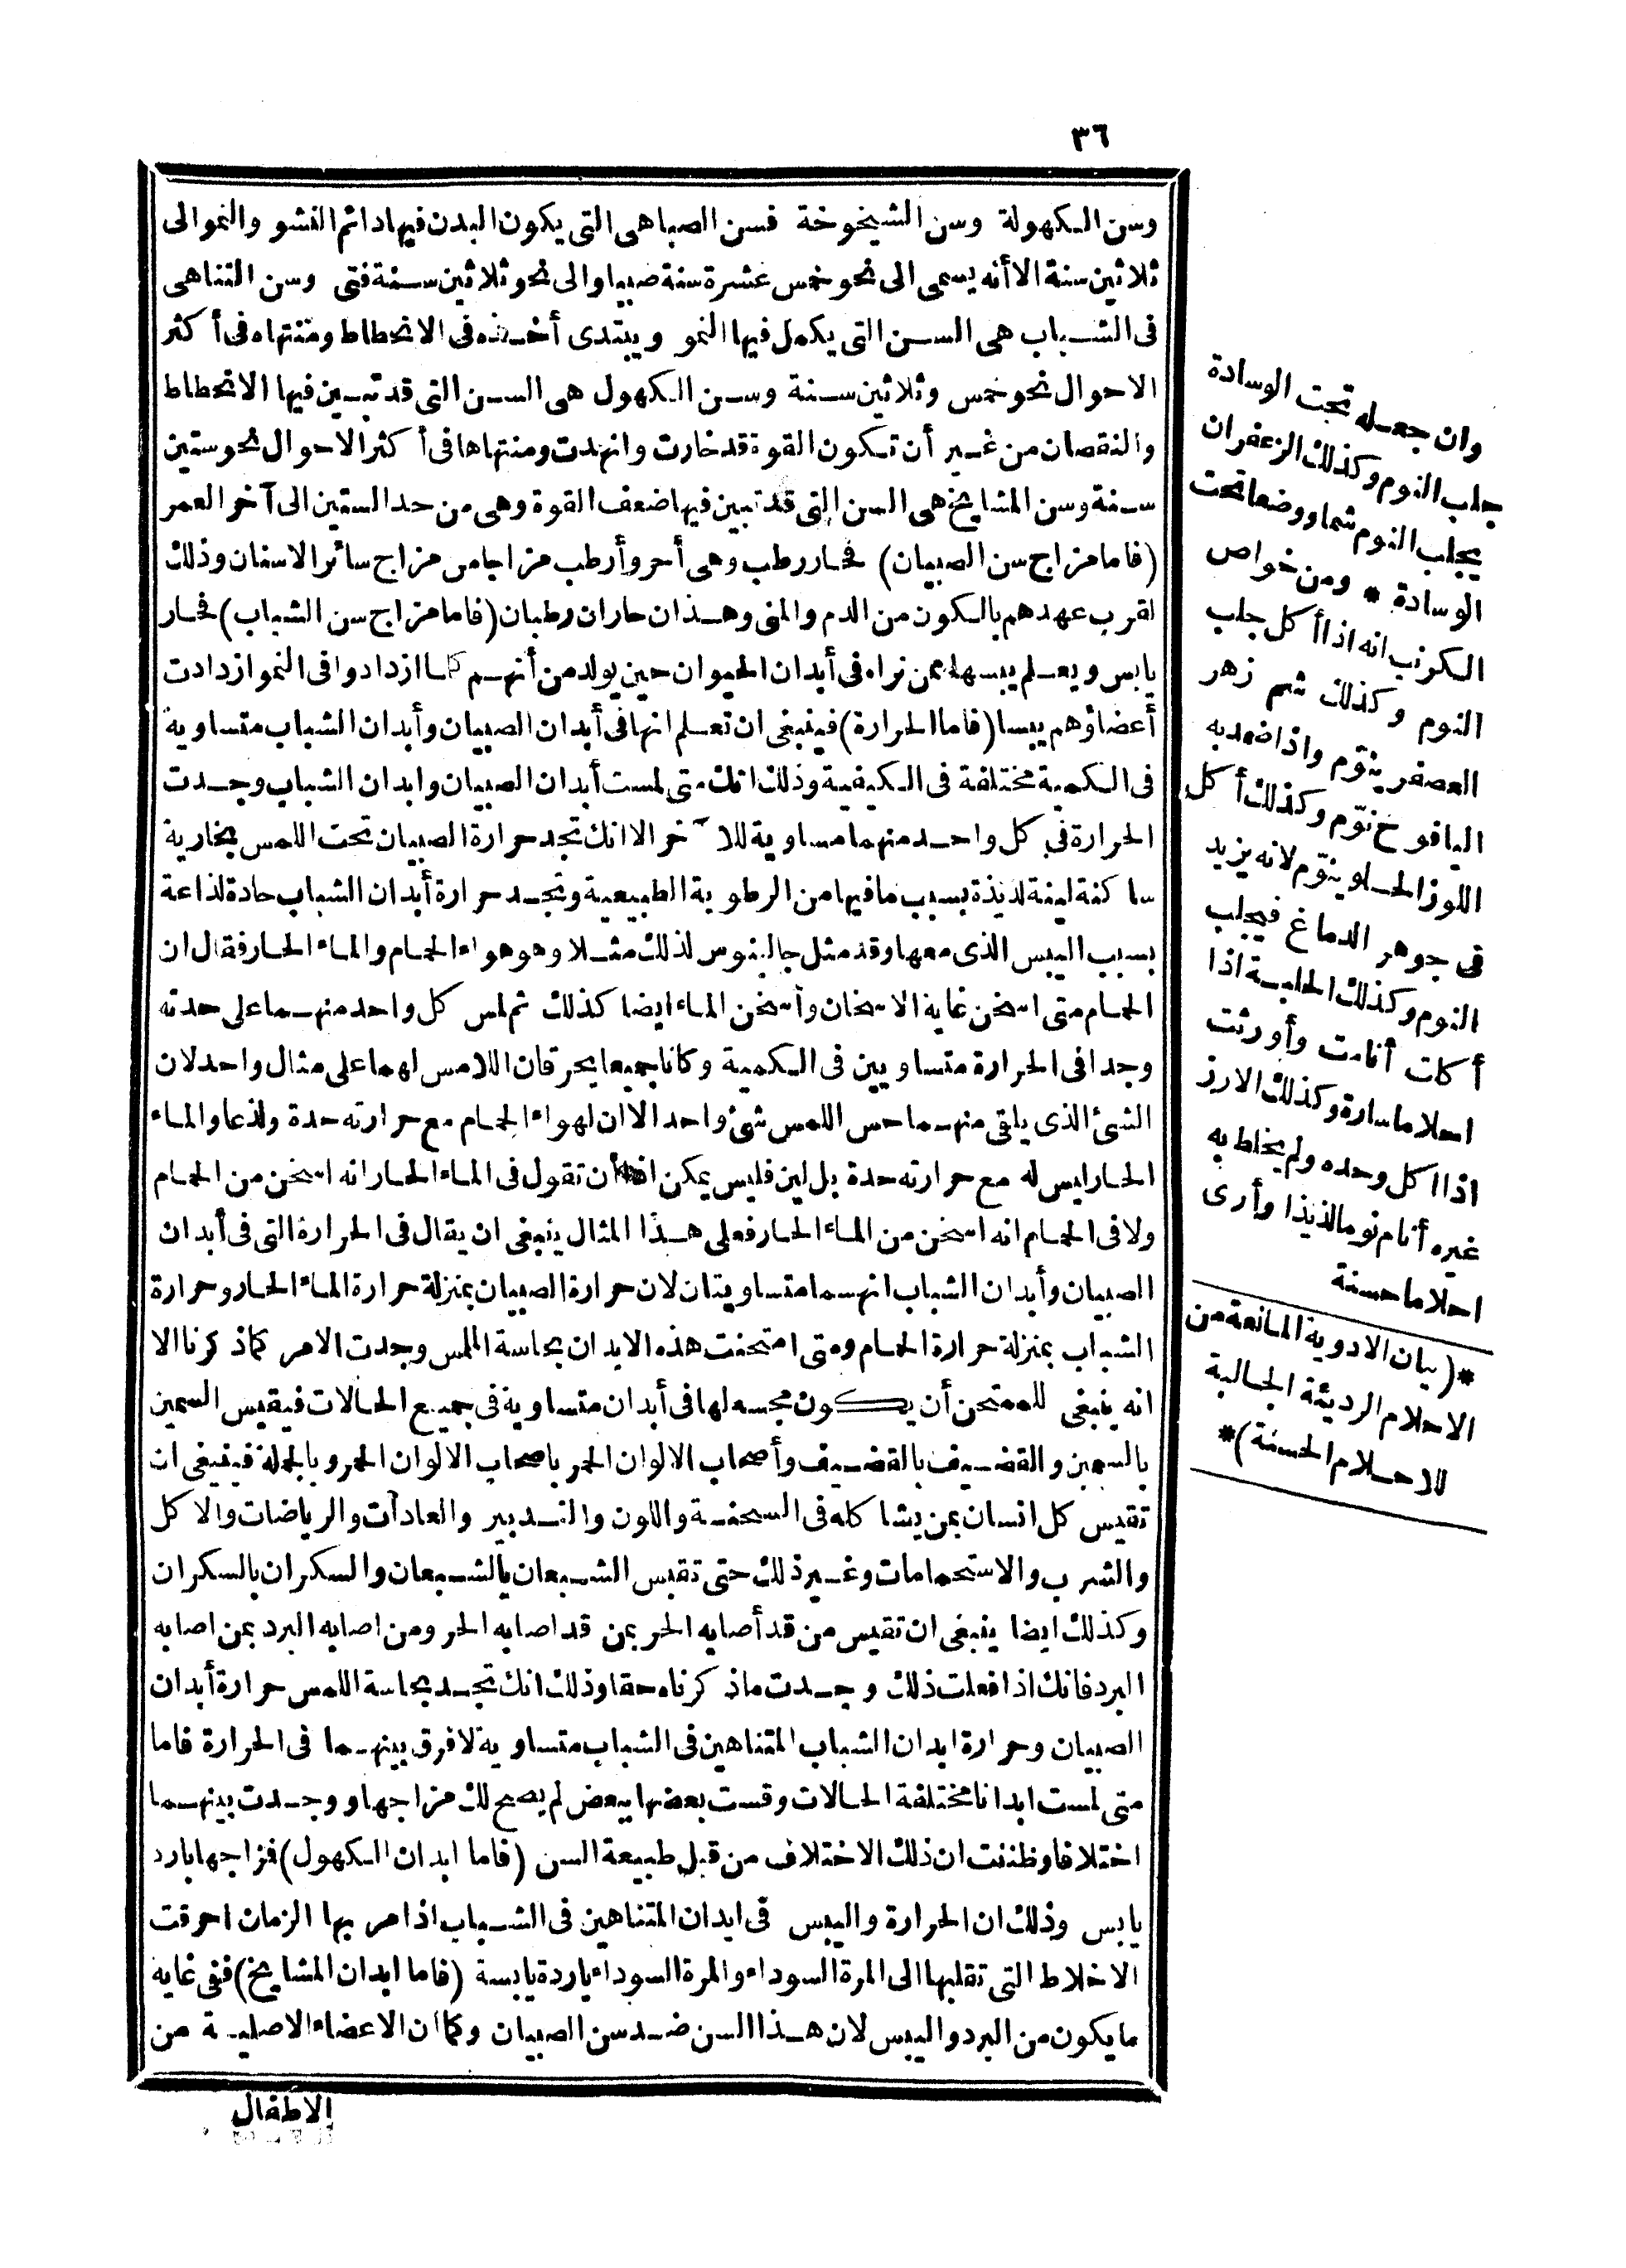 ٣٦
وسن الكهولة وسن الشيخوخة فسن الصبا هى التى يكون البدن فيها دائم النشو والنمو الى
ثلاثين سنة الا أنه يسمى الى نحو خمس عشرة سنة صبيا والى نحو ثلاثين سنة فتى وسن التناهى
فى الشباب هى السن التى يكمل فيها النمو ويبتدى أخذه فى الانحطاط ومنتهاه فى أكثر
الاحوال نحو خمس وثلاثين سنة وسن الكهول هى السن التى قد تبين فيها الانحطاط
والنقصان من غير أن تكون القوة قد خارت وانهدت ومنتهاها فى أكثر الاحوال نحو ستين
سنة وسن المشايخ هى السن التى قد تبين فيها ضعف القوة وهى من حد الستين الى آخر العمر
(فاما مزاج سن الصبيان) فحار رطب وهى أحر وأرطب مزاجا من مزاج سائر الاسنان وذلك
لقرب عهدهم بالكون من الدم والمنى وهذان حاران رطبان (فاما مزاج سن الشباب) فحار
يابس ويعلم يبسها ممن نراه فى أبدان الحيوان حين يولد من أنهم كلما ازدادوا فى النمو ازدادت
أعضاؤهم يبسا (فاما الحرارة) فينبغى ان تعلم انها فى أبدان الصبيان وأبدان الشباب متساوية
فى الكمية مختلفة فى الكيفية وذلك انك متى لمست أبدان الصبيان وابدان الشباب وجدت
الحرارة فى كل واحد منهما مساوية للآخر الا انك تجد حرارة الصبيان تحت اللمس بخارية
ساكنة لينة لذيذة بسبب ما فيها من الرطوبة الطبيعية وتجد حرارة أبدان الشباب حادة لذاعة
بسبب اليبس الذى معها وقد مثل جالينوس لذلك مثلا وهو هواء الحمام والماء الحار فقال ان
الحمام متى اسخن غاية الاسخان وأسخن الماء ايضا كذلك ثم لمس كل واحد منهما على حدته
وجدا فى الحرارة متساويين فى الكمية وكانا جميعا يحرقان اللامس لهما على مثال واحد لان
الشئ الذى يلقى منهما حس اللمس شئ واحد الا ان لهواء الحمام مع حرارته حدة ولذعا والماء
الحار ليس له مع حرارته حدة بل لين فليس يمكن أن تقول فى الماء الحار انه اسخن من الحمام
ولا فى الحمام انه اسخن من الماء الحار فعلى هذا المثال ينبغى ان يقال فى الحرارة التى فى أبدان
الصبيان وأبدان الشباب انهما متساويتان لان حرارة الصبيان بمنزلة حرارة الماء الحار وحرارة
الشباب بمنزلة حرارة الحمام ومتى امتحنت هذه الابدان بحاسة اللمس وجدت الامر كما ذكرنا الا
انه ينبغى للممتحن أن يكون مجسه لها فى أبدان متساوية فى جميع الحالات فيقيس السمين
بالسمين والقضيف بالقضيف وأصحاب الالوان الحمر باصحاب الالوان الحمر وبالجملة فينبغى ان
تقيس كل انسان بمن يشاكله فى السحنة واللون والتدبير والعادآت والرياضات والاكل
والشرب والاستحمامات وغير ذلك حتى تقيس الشبعان بالشبعان والسكران بالسكران
وكذلك ايضا ينبغى ان تقيس من قد أصابه الحر بمن قد اصابه الحر ومن اصابه البرد بمن اصابه
البرد فانك اذا فعلت ذلك وجدت ما ذكرناه حقا وذلك انك تجد بحاسة اللمس حرارة أبدان
الصبيان وحرارة ابدان الشباب المتناهين فى الشباب متساوية لا فرق بينهما فى الحرارة فاما
متى لمست ابدانا مختلفة الحالات وقست بعضها ببعض لم يصح لك مزاجها ووجدت بينهما
اختلافا وظننت ان ذلك الاختلاف من قبل طبيعة السن (فاما ابدان الكهول) فمزاجها بارد
يابس وذلك ان الحرارة واليبس فى ابدان المتناهين فى الشباب اذا مر بها الزمان احرقت
الاخلاط التى تقلبها الى المرة السوداء والمرة السوداء باردة يابسة (فاما ابدان المشايخ) ففى غاية
ما يكون من البرد واليبس لان هذا السن ضد سن الصبيان وكما ان الاعضاء الاصلية من
الاطفال
وان جعله تحت الوسادة
جلب النوم وكذلك الزعفران
يجلب النوم شما ووضعا تحت
الوسادة * ومن خواص
الكرنب انه اذا أكل جلب
النوم وكذلك شم زهر
العصفر ينوّم واذا ضمد به
اليافوخ نوّم وكذلك أكل
اللوز الحلو ينوّم لانه يزيد
فى جوهر الدماغ فيجلب
النوم وكذلك الحلبة اذا
أكلت أنامت وأورثت
احلاما سارة وكذلك الارز
اذا اكل وحده ولم يخلط به
غيره أنام نوما لذيذا وأرى
احلاما حسنة
*(بيان الادوية المانعة من
الاحلام الرديئة الجالبة
للاحلام الحسنة)*